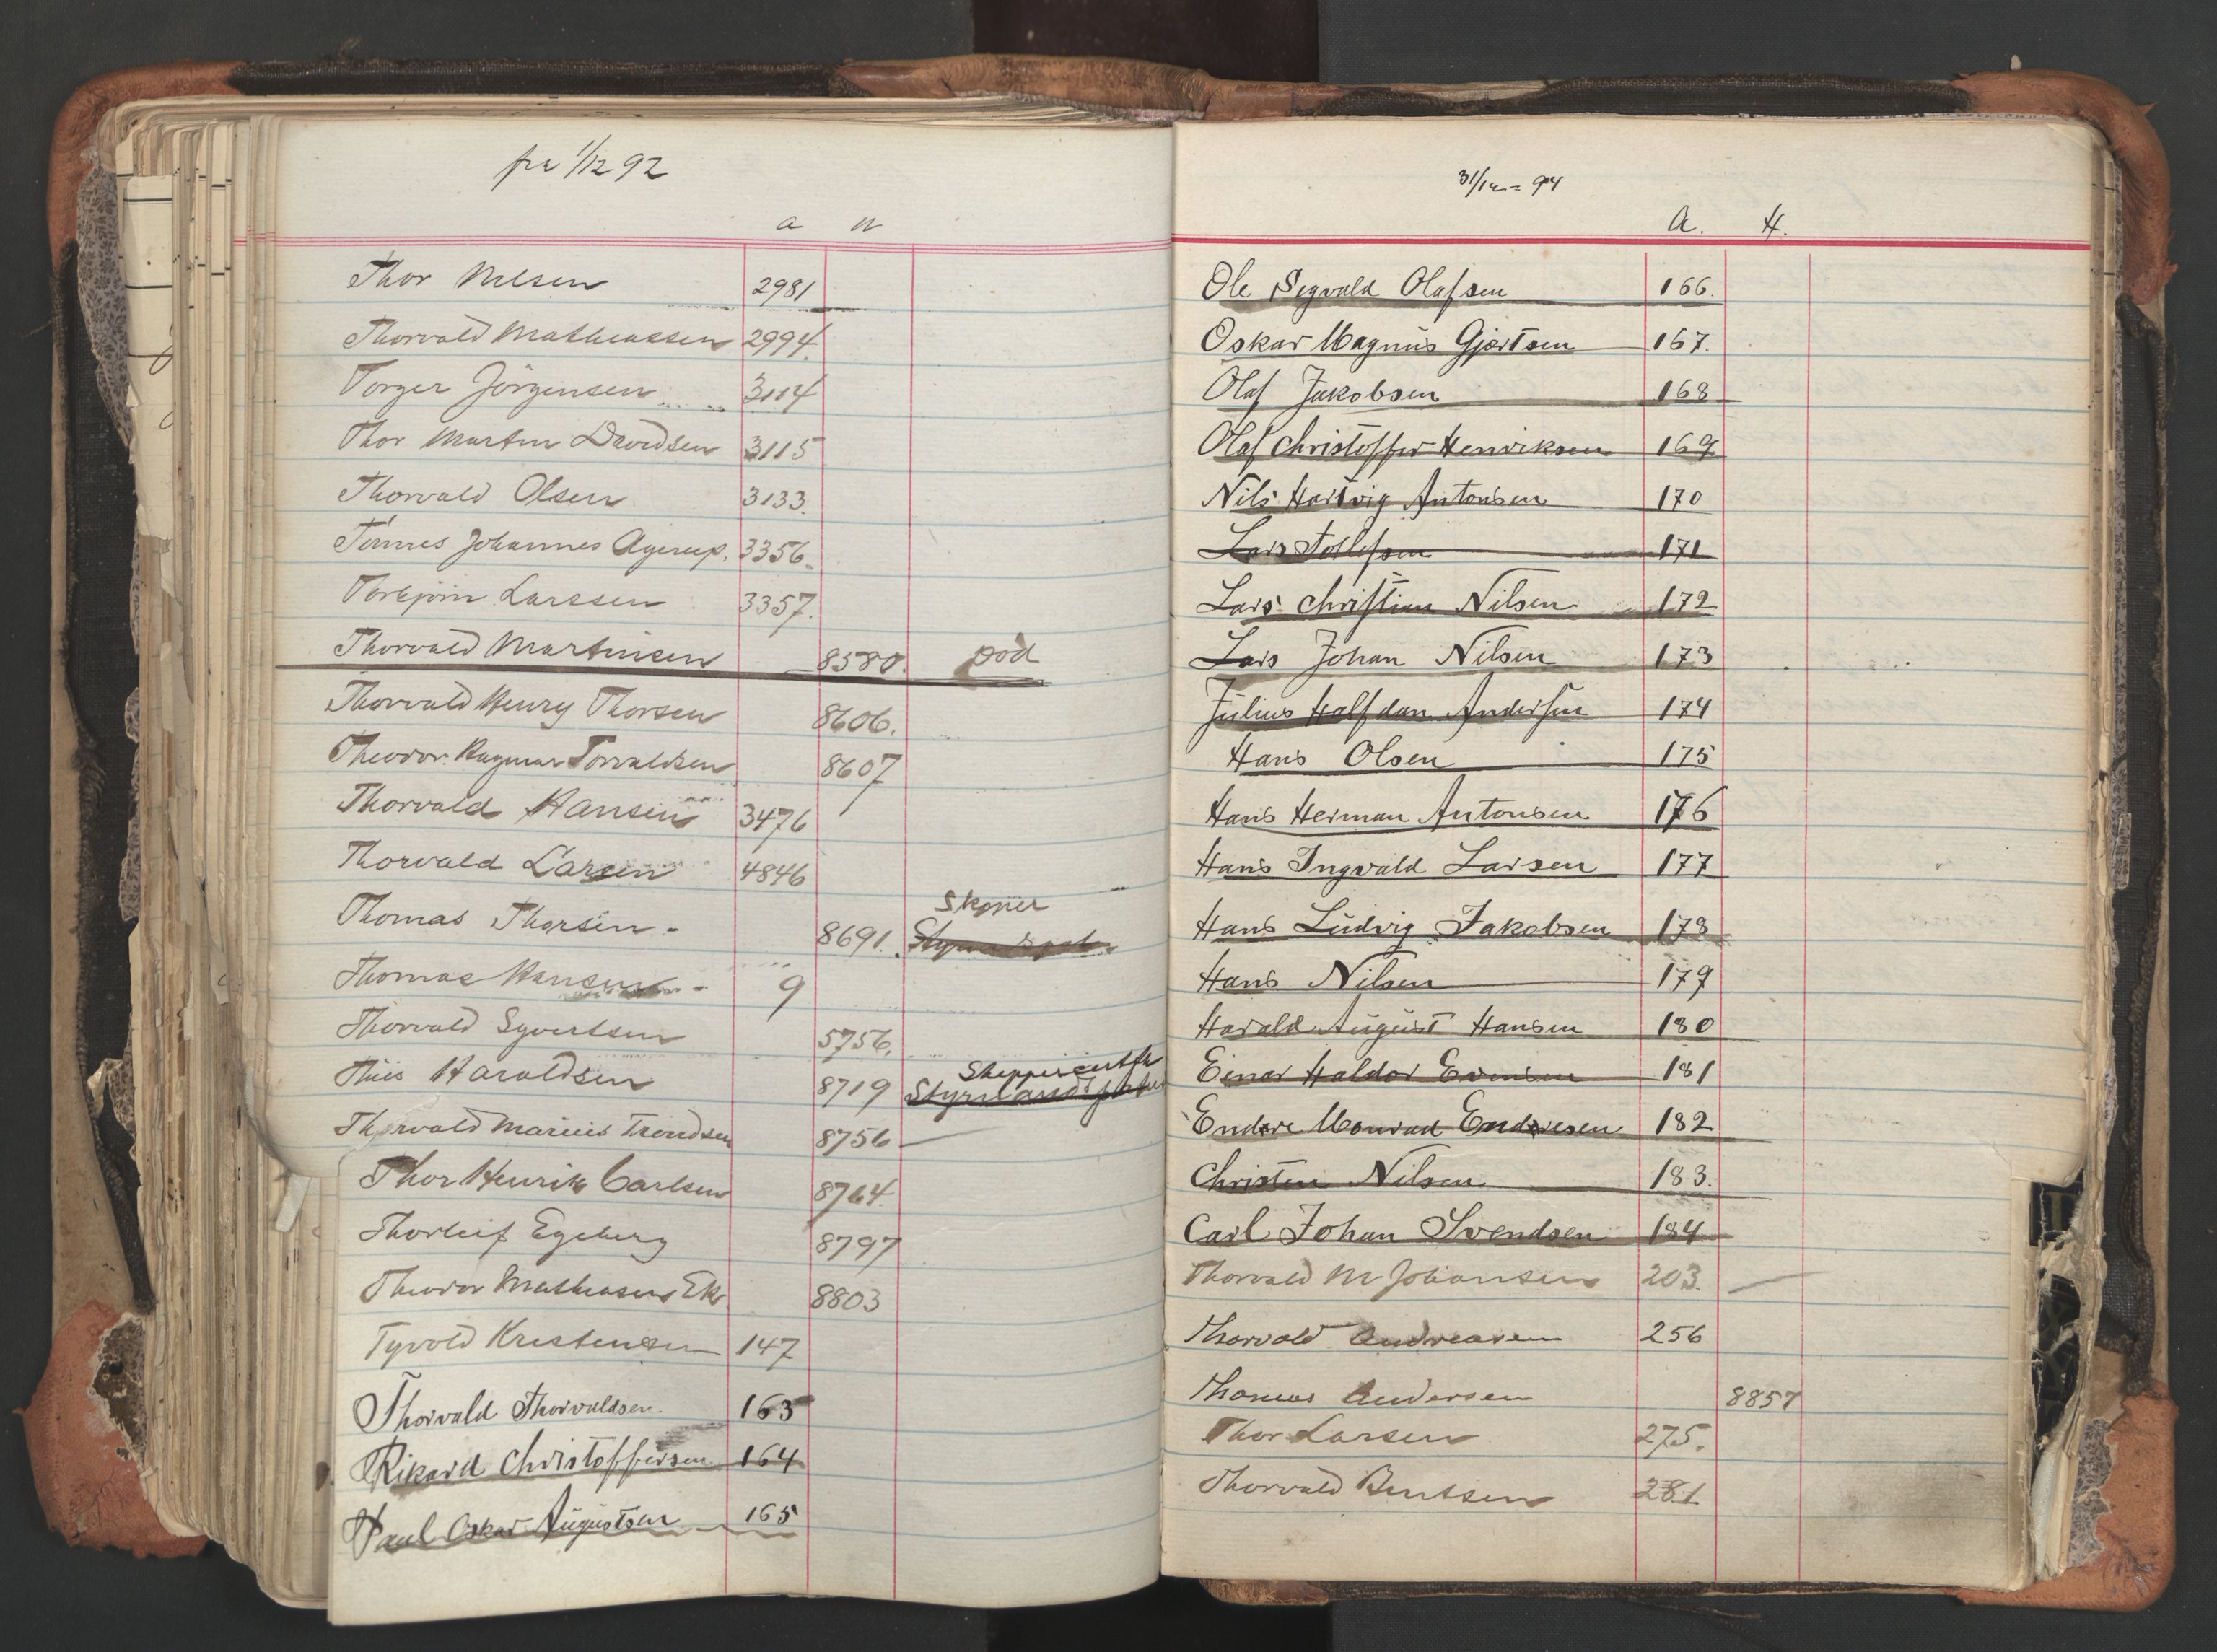 fra 1/12 92
a n
Thor Nilsen 2981
Thorvald Mathiassen 2994
Torger Jörgensen 3114
Thor Martin Davidsen 3115
Thorvald Olsen 3133.
Tönnes Johannes Agerup. 3356.
Torbjörn Larssen 3357.
Thorvald Martinsen 8580. död
Thorvald Henry Thorsen 8606.
Theodor Ragnvar Torvaldsen 8607
Thorvald Hansen 3476
Thorvald Larsen 4846
Skipper
Thomas Thorsen - 8691.
Thomas Hansen - 9
Thorvald Syvertsen 5756.
Thiis Haraldsen 8719
Thorvald Marius Trondsen 8756 —
Thor Henrik Carlsen 8764.
Thorleif Egeberg 8797
Theodor Mathiasen Ek 8803
Tyvold Kristensen 147
Thorvald Thorvaldsen. 163
Rikard Christoffersen 164
Paul Oskar Augustsen 165
31/12 = 94
A. H.
Ole Segvald Olafsen 166.
Oskar Magnus Gjertsen 167.
Olaf Jakobsen 168
Olaf Christoffer Henriksen 169
Nils Hartvig Antonsen 170
Lars Tollefsen 171
Lars Christian Nilsen 172
Lars Johan Nilsen 173
Julius Halfdan Andersen 174
Hans Olsen 175
Hans Herman Antonsen 176
Hans Ingvald Larsen 177
Hans Ludvig Jakobsen 178
Hans Nilsen 179
Harald August Hansen 180
Einar Haldor Evensen 181
Endre Monrad Endresen 182
Christen Nilsen 183.
Carl Johan Svendsen 184
Thorvald M Johansen 203. —
Thorvald Andreasen 256
Thomas Andersen 8857
Thor Larsen 275.
Thorvald Bentsen 281